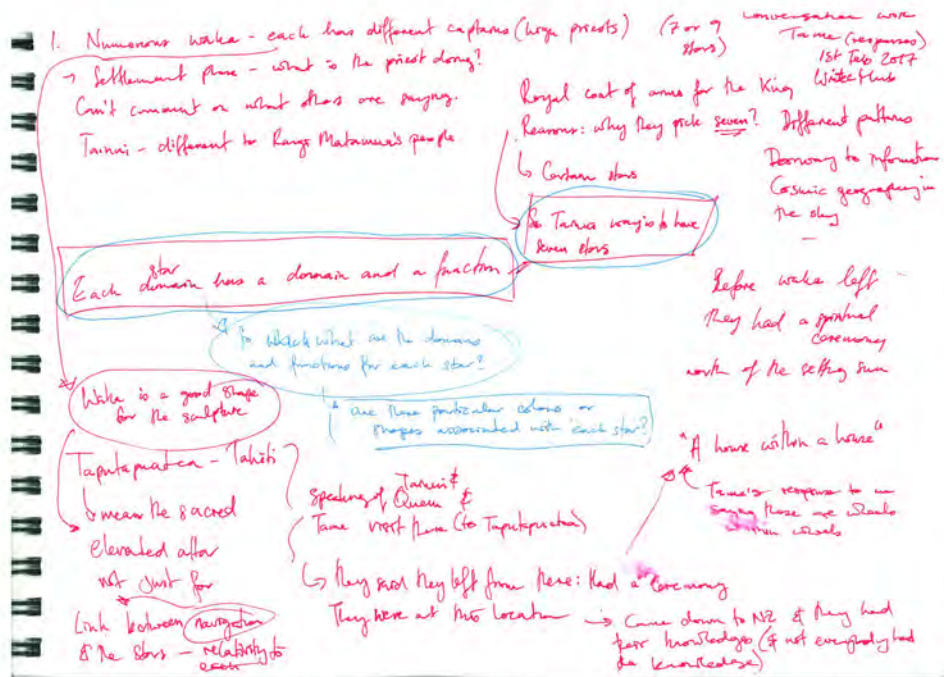 1. Numerous waka - each has different captains (high priests)
(7 or 9
stars)
conversation with
Tame (responses)
1st Feb 2017
→ Settlement phase - what is the priest doing?
Can't comment on what others are saying.
Tainui - different to Rangi Matamua's people
Royal coat of arms for the King
Reasons: why they pick seven?
↳ Certain stars
So Tainui way is to have
seven stars
Different patterns
Doorway to information
Cosmic geography in
the sky
-
star
Each domain has a domain and a function
what are the domains
and functions for each star?
are there particular colours or
shapes associated with each star?
Before waka left
they had a spiritual
ceremony
north of the setting sun
Waka is a good shape
for the sculpture
Taputapuatea - Tahiti
↳ means the sacred
elevated altar
not just for
Link between navigation
& the stars - relativity to
each
speaking of Tainui &
Queen &
Tame visit there (to Taputapuatea)
↳ They said they left from here: Had a ceremony
They were at this location → Came down to NZ & they had
their knowledges (& not everybody had
the knowledge)
"A house within a house"
Tame's response to me
saying these are wheels
within wheels